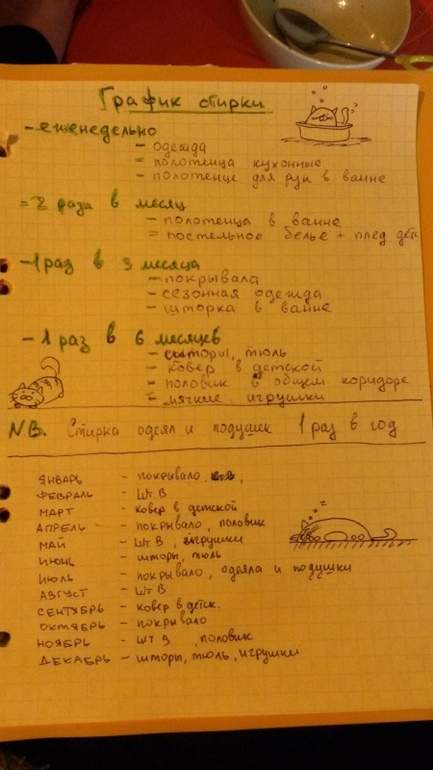 График стирки
- еженедельно
- одежда
= полотенца кухонные
- полотенце для рук в ванне
= 2 раза в месяц
- полотенца в ванне
= постельное белье + плед дет
- 1 раз в 3 месяца
- покрывала
- сезонная одежда
- шторка в ванне
- 1 раз в 6 месяцев
- шторы, тюль
- ковер в детской
- половик в общем коридоре
- мягкие игрушки
N.B. Стирка одеял и подушек 1 раз в год
ЯНВАРЬ - покрывало,
ФЕВРАЛЬ - Шт. В
МАРТ - ковер в детской
АПРЕЛЬ - покрывало, половик
МАЙ - Шт В, игрушки
ИЮНЬ - шторы, тюль
ИЮЛЬ - покрывало, одеяла и подушки
АВГУСТ - Шт В
СЕНТЯБРЬ - ковер в детск.
ОКТЯБРЬ - покрывало
НОЯБРЬ - Шт В, половик
ДЕКАБРЬ - шторы, тюль, игрушки